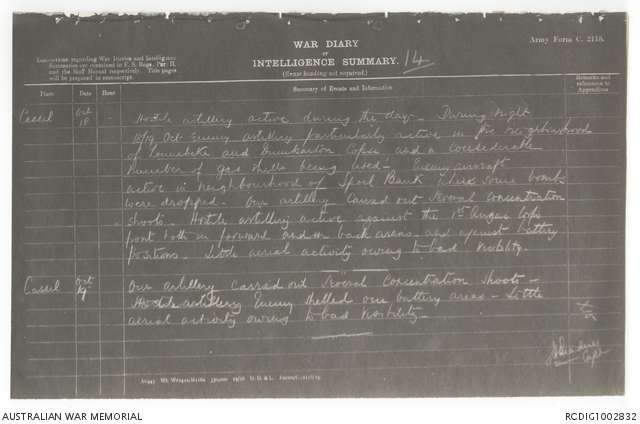 Army Form C. 2118.
WAR DIARY
or
INTELLIGENCE SUMMARY. 14
(Erase heading not required.)
Instructions regarding War Diaries and Intelligence
Summaries are contained in F. S. Regs., Part II.
and the Staff Manual respectively. Title pages
will be prepared in manuscript.
Place Date Hour Summary of Events and Information Remarks and references to Appendices
Cassel Oct 18 - Hostile artillery active during the day - During night
18/19 Oct Enemy artillery particularly active in the neighbourhood
of Zonnebeke and Copse and a considerable
number of gas shells being used - Enemy aircraft
active in neighbourhood of Spoil Bank where some bombs
were dropped. Our artillery carried out several concentration
shoots. Hostile artillery active against the 1st Anzac Corps
front both in forward and back areas and against battery
positions. Little aerial activity owing to bad visibility.
Cassel Oct 19 Our artillery carried out several concentration shoots -
Enemy shelled our battery areas - Little
aerial activity owing to bad visibility -
Capt
AUSTRALIAN WAR MEMORIAL
RCDIG1002832